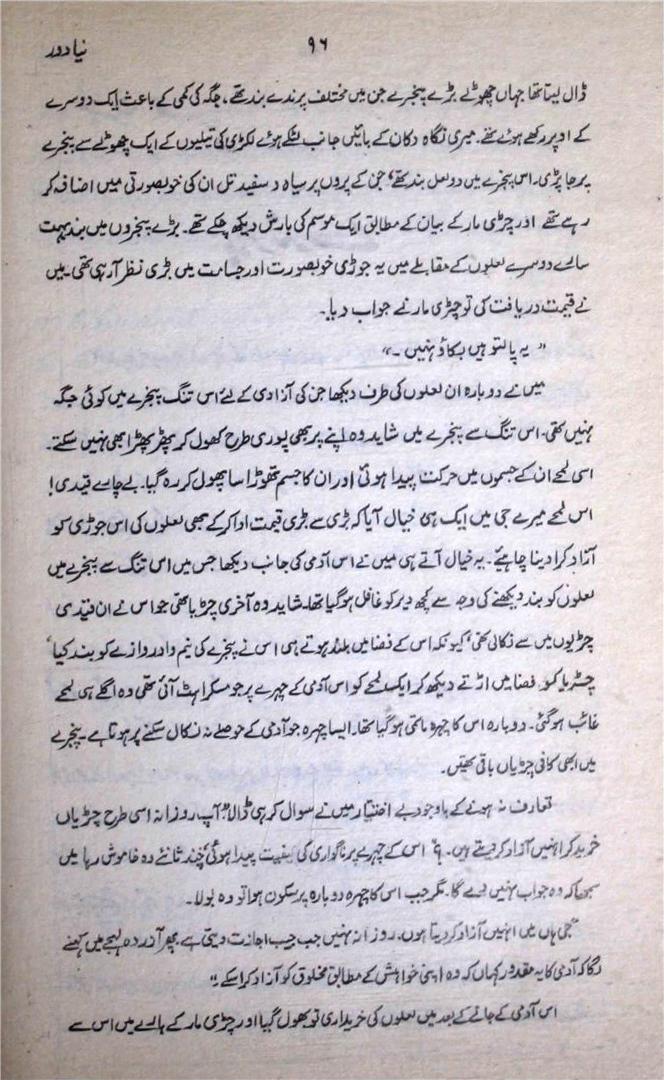 نیا دور
۹۶
ڈال لیتا تھا جہاں چھوٹے بڑے پنجرے جن میں مختلف پرندے بند تھے، جگہ کی کمی کے باعث ایک دوسرے
کے اوپر رکھے ہوئے تھے۔ میری نگاہ دکان کے بائیں جانب لٹکے ہوئے لکڑی کی تیلیوں کے ایک چھوٹے سے پنجرے
پر جا پڑی۔ اس پنجرے میں دو لعل بند تھے، جن کے پروں پر سیاہ و سفید تل ان کی خوبصورتی میں اضافہ کر
رہے تھے اور چڑی مار کے بیان کے مطابق ایک موسم کی بارش دیکھ چکے تھے۔ بڑے پنجروں میں بند بہت
سارے دوسرے لعلوں کے مقابلے میں یہ جوڑی خوبصورت اور جسامت میں بڑی نظر آ رہی تھی۔ میں
نے قیمت دریافت کی تو چڑی مار نے جواب دیا۔
” یہ پالتو ہیں بکاؤ نہیں ۔“
میں نے دوبارہ ان لعلوں کی طرف دیکھا جن کی آزادی کے لئے اس تنگ پنجرے میں کوئی جگہ
نہیں تھی۔ اس تنگ سے پنجرے میں شاید وہ اپنے پر بھی پوری طرح کھول کر پھڑ پھڑا بھی نہیں سکتے۔
اسی لمحے ان کے جسموں میں حرکت پیدا ہوئی اور ان کا جسم تھوڑا سا پھول کر رہ گیا۔ بے چارے قیدی!
اس لمحے میرے جی میں ایک ہی خیال آیا کہ بڑی سے بڑی قیمت ادا کر کے بھی لعلوں کی اس جوڑی کو
آزاد کرا دینا چاہئے۔ یہ خیال آتے ہی میں نے اس آدمی کی جانب دیکھا جس میں اس تنگ سے پنجرے میں
لعلوں کو بند دیکھنے کی وجہ سے کچھ دیر کو غافل ہو گیا تھا۔ شاید وہ آخری چڑیا تھی جو اس نے ان قیدی
چڑیوں میں سے نکالی تھی، کیونکہ اس کے فضا میں بلند ہوتے ہی اس نے پنجرے کی نیم وا دروازے کو بند کیا،
چڑیا کو فضا میں اڑتے دیکھ کر ایک لمحے کو اس آدمی کے چہرے پر جو مسکراہٹ آئی تھی وہ اگلے ہی لمحے
غائب ہو گئی۔ دوبارہ اس کا چہرہ ماتمی ہو گیا تھا۔ ایسا چہرہ جو آدمی کے حوصلے نہ نکال سکنے پر ہوتا ہے ۔ پنجرے
میں ابھی کافی چڑیاں باقی تھیں۔
تعارف نہ ہونے کے باوجود بے اختیار میں نے سوال کر ہی ڈالا ”آپ روزانہ اسی طرح چڑیاں
خرید کر انہیں آزاد کر دیتے ہیں۔؟“ اس کے چہرے پر ناگواری کی کیفیت پیدا ہوئی، چند ثانئے وہ خاموش رہا میں
سمجھا کہ وہ جواب نہیں دے گا۔ مگر جب اس کا چہرہ دوبارہ پرسکون ہوا تو وہ بولا۔
”جی ہاں میں انہیں آزاد کر دیتا ہوں۔ روزانہ نہیں جب جیب اجازت دیتی ہے۔ پھر آزردہ لہجے میں کہنے
لگا کہ آدمی کا یہ مقدور کہاں کہ وہ اپنی خواہش کے مطابق مخلوق کو آزاد کرا سکے۔“
اس آدمی کے جانے کے بعد میں لعلوں کی خریداری تو بھول گیا اور چڑی مار کے بارے میں اس سے